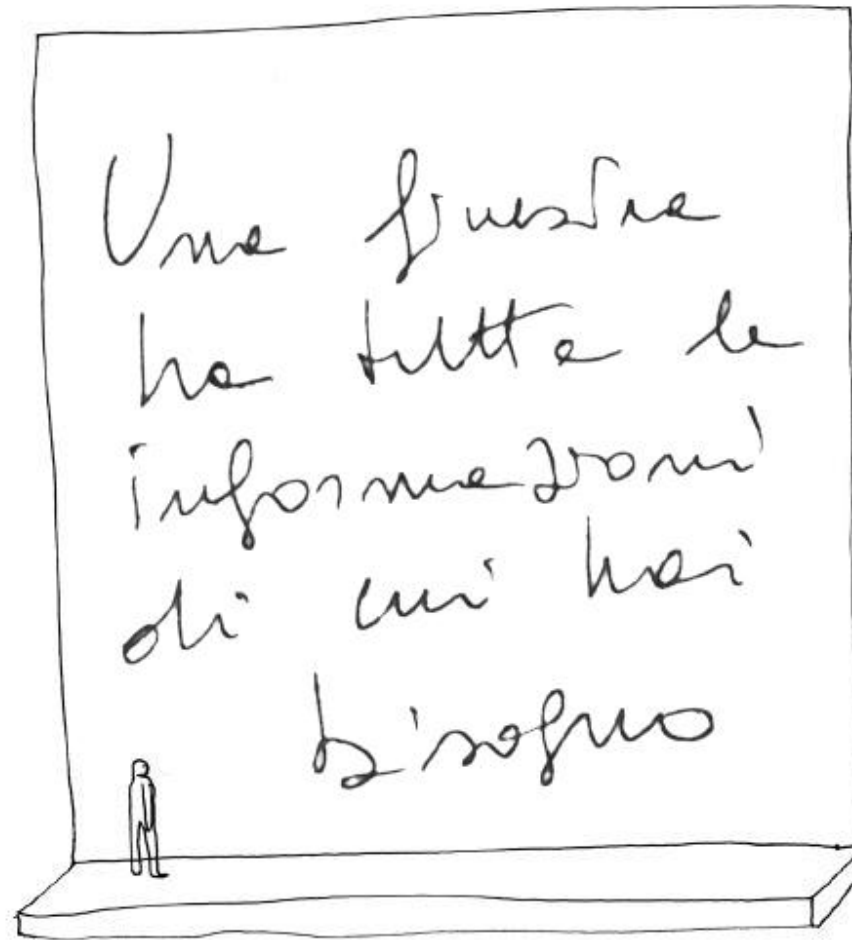 Una finestra
ha tutte le
informazioni
di cui hai
bisogno